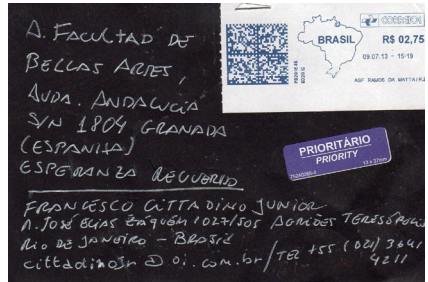 A. FACULTAD DE
BELLAS ARTES,
AVDA. ANDALUCIA
S/N 1804 GRANADA
(ESPANHA)
ESPERANZA RECUERDO
FRANCESCO CITTADINO JUNIOR
R. JOSÉ ELIAS ZÁQUEM 1027/505 AGRIÕES TERESÓPOLIS
RIO DE JANEIRO - BRASIL
cittadinojr @ oi.com.br / TEL +55 (021) 3641
4211
CORREIOS
BRASIL
R$ 02,75
09.07.13 - 15:19
AGF RAMOS DA MATTA/RJ
PRIORITÁRIO
PRIORITY